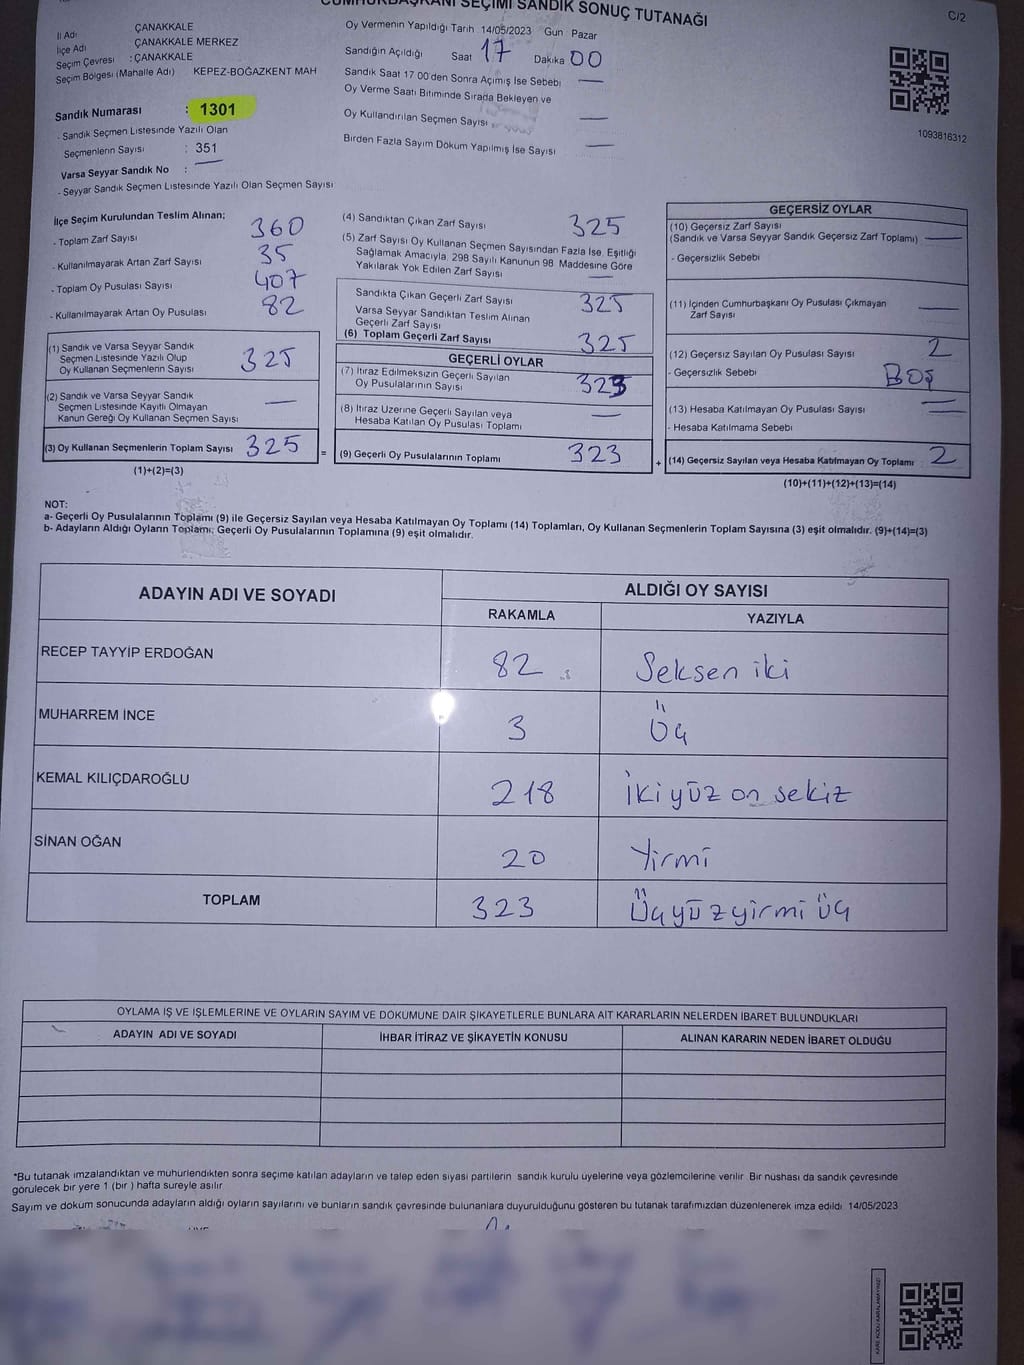 CUMHURBAŞKANI SEÇİMİ SANDIK SONUÇ TUTANAĞI
C/2
İl Adı ÇANAKKALE
İlçe Adı ÇANAKKALE MERKEZ
Seçim Çevresi : ÇANAKKALE
Seçim Bölgesi (Mahalle Adı) KEPEZ-BOĞAZKENT MAH
Sandık Numarası : 1301
- Sandık Seçmen Listesinde Yazılı Olan
Seçmenlerin Sayısı : 351
Varsa Seyyar Sandık No : —
- Seyyar Sandık Seçmen Listesinde Yazılı Olan Seçmen Sayısı
Oy Vermenin Yapıldığı Tarih 14/05/2023 Gün Pazar
Sandığın Açıldığı Saat 17 Dakika 00
Sandık Saat 17 00'den Sonra Açımış İse Sebebi —
Oy Verme Saati Bitiminde Sırada Bekleyen ve
Oy Kullandırılan Seçmen Sayısı —
Birden Fazla Sayım Döküm Yapılmış İse Sayısı —
1093816312
İlçe Seçim Kurulundan Teslim Alınan;
- Toplam Zarf Sayısı 360
- Kullanılmayarak Artan Zarf Sayısı 35
- Toplam Oy Pusulası Sayısı 407
- Kullanılmayarak Artan Oy Pusulası 82
(1) Sandık ve Varsa Seyyar Sandık
Seçmen Listesinde Yazılı Olup
Oy Kullanan Seçmenlerin Sayısı 325
(2) Sandık ve Varsa Seyyar Sandık
Seçmen Listesinde Kayıtlı Olmayan
Kanun Gereği Oy Kullanan Seçmen Sayısı —
(3) Oy Kullanan Seçmenlerin Toplam Sayısı 325 =
(1)+(2)=(3)
(4) Sandıktan Çıkan Zarf Sayısı 325
(5) Zarf Sayısı Oy Kullanan Seçmen Sayısından Fazla İse, Eşitliği
Sağlamak Amacıyla, 298 Sayılı Kanunun 98. Maddesine Göre
Yakılarak Yok Edilen Zarf Sayısı —
Sandıkta Çıkan Geçerli Zarf Sayısı 325
Varsa Seyyar Sandıktan Teslim Alınan
Geçerli Zarf Sayısı
(6) Toplam Geçerli Zarf Sayısı 325
GEÇERLİ OYLAR
(7) İtiraz Edilmeksizin Geçerli Sayılan
Oy Pusulalarının Sayısı 323
(8) İtiraz Üzerine Geçerli Sayılan veya
Hesaba Katılan Oy Pusulası Toplamı —
(9) Geçerli Oy Pusulalarının Toplamı 323 +
GEÇERSİZ OYLAR
(10) Geçersiz Zarf Sayısı
(Sandık ve Varsa Seyyar Sandık Geçersiz Zarf Toplamı) —
- Geçersizlik Sebebi
(11) İçinden Cumhurbaşkanı Oy Pusulası Çıkmayan
Zarf Sayısı —
(12) Geçersiz Sayılan Oy Pusulası Sayısı 2
- Geçersizlik Sebebi BOŞ
(13) Hesaba Katılmayan Oy Pusulası Sayısı —
- Hesaba Katılmama Sebebi —
(14) Geçersiz Sayılan veya Hesaba Katılmayan Oy Toplamı 2
(10)+(11)+(12)+(13)=(14)
NOT:
a- Geçerli Oy Pusulalarının Toplamı (9) ile Geçersiz Sayılan veya Hesaba Katılmayan Oy Toplamı (14) Toplamları, Oy Kullanan Seçmenlerin Toplam Sayısına (3) eşit olmalıdır. (9)+(14)=(3)
b- Adayların Aldığı Oyların Toplamı, Geçerli Oy Pusulalarının Toplamına (9) eşit olmalıdır.
ADAYIN ADI VE SOYADI ALDIĞI OY SAYISI
RAKAMLA YAZIYLA
RECEP TAYYİP ERDOĞAN 82 Seksen iki
MUHARREM İNCE 3 Üç
KEMAL KILIÇDAROĞLU 218 İkiyüz on sekiz
SİNAN OĞAN 20 Yirmi
TOPLAM 323 Üçyüzyirmi üç
OYLAMA İŞ VE İŞLEMLERİNE VE OYLARIN SAYIM VE DÖKÜMÜNE DAİR ŞİKAYETLERLE BUNLARA AİT KARARLARIN NELERDEN İBARET BULUNDUKLARI
ADAYIN ADI VE SOYADI İHBAR İTİRAZ VE ŞİKAYETİN KONUSU ALINAN KARARIN NEDEN İBARET OLDUĞU
*Bu tutanak imzalandıktan ve mühürlendikten sonra seçime katılan adayların ve talep eden siyasi partilerin sandık kurulu üyelerine veya gözlemcilerine verilir. Bir nüshası da sandık çevresinde
görülecek bir yere 1 (bir ) hafta süreyle asılır
Sayım ve döküm sonucunda adayların aldığı oyların sayılarını ve bunların sandık çevresinde bulunanlara duyurulduğunu gösteren bu tutanak tarafımızdan düzenlenerek imza edildi. 14/05/2023
KARE KODU KARALAMAYINIZ!